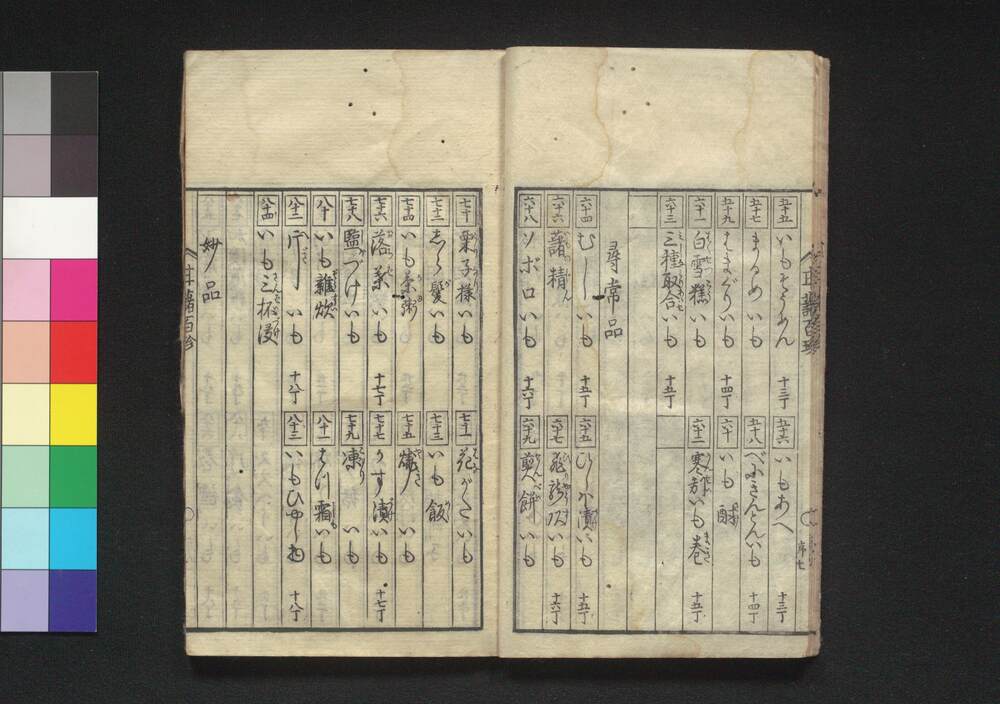 五十五 いもそうめん 十三丁
五十六 いもあへ 十三丁
五十七 まるめいも
五十八 べにきんとんいも 十四丁
五十九 はまぐりいも 十四丁
六十 いも酢
六十一 白雪糕いも
六十二 寒方いも巻 十五丁
六十三 三種取合いも 十五丁
尋常品
六十四 むしいも 十五丁
六十五 ひしほ漬いも 十五丁
六十六 藷精
六十七 飛龍頭いも 十六丁
六十八 ソボロいも 十六丁
六十九 煎餅いも
甘藷百珍
序七
七十 栗子様いも
七十一 花がたいも
七十二 しらが髪いも
七十三 いも飯
七十四 いも茶粥
七十五 焼いも
七十六 落葉いも 十七丁
七十七 かす漬いも 十七丁
七十八 塩づけいも
七十九 凍いも
八十 いも雑炊
八十一 はつ霜いも
八十二 ほしいも 十八丁
八十三 いもひしほ 十八丁
八十四 いも三杯漬
妙品
甘藷百珍